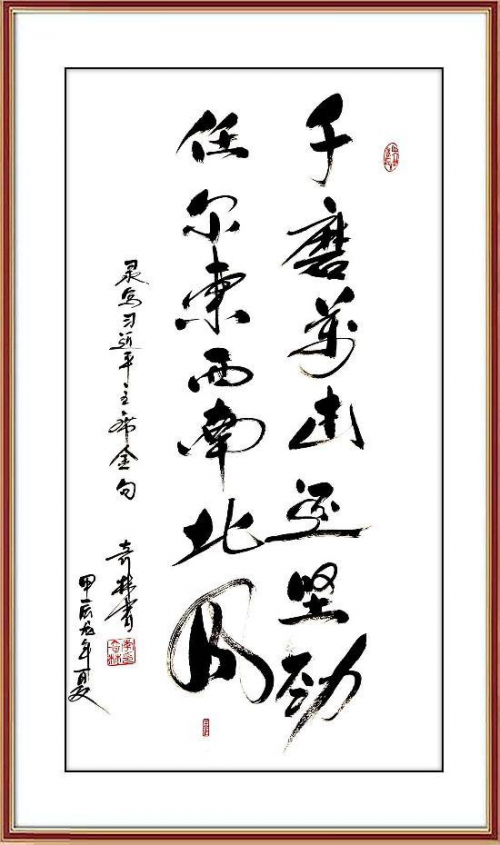 千磨萬击还坚劲
任尔東西南北风
录写习近平主席金句 奇林书
甲辰龙年夏